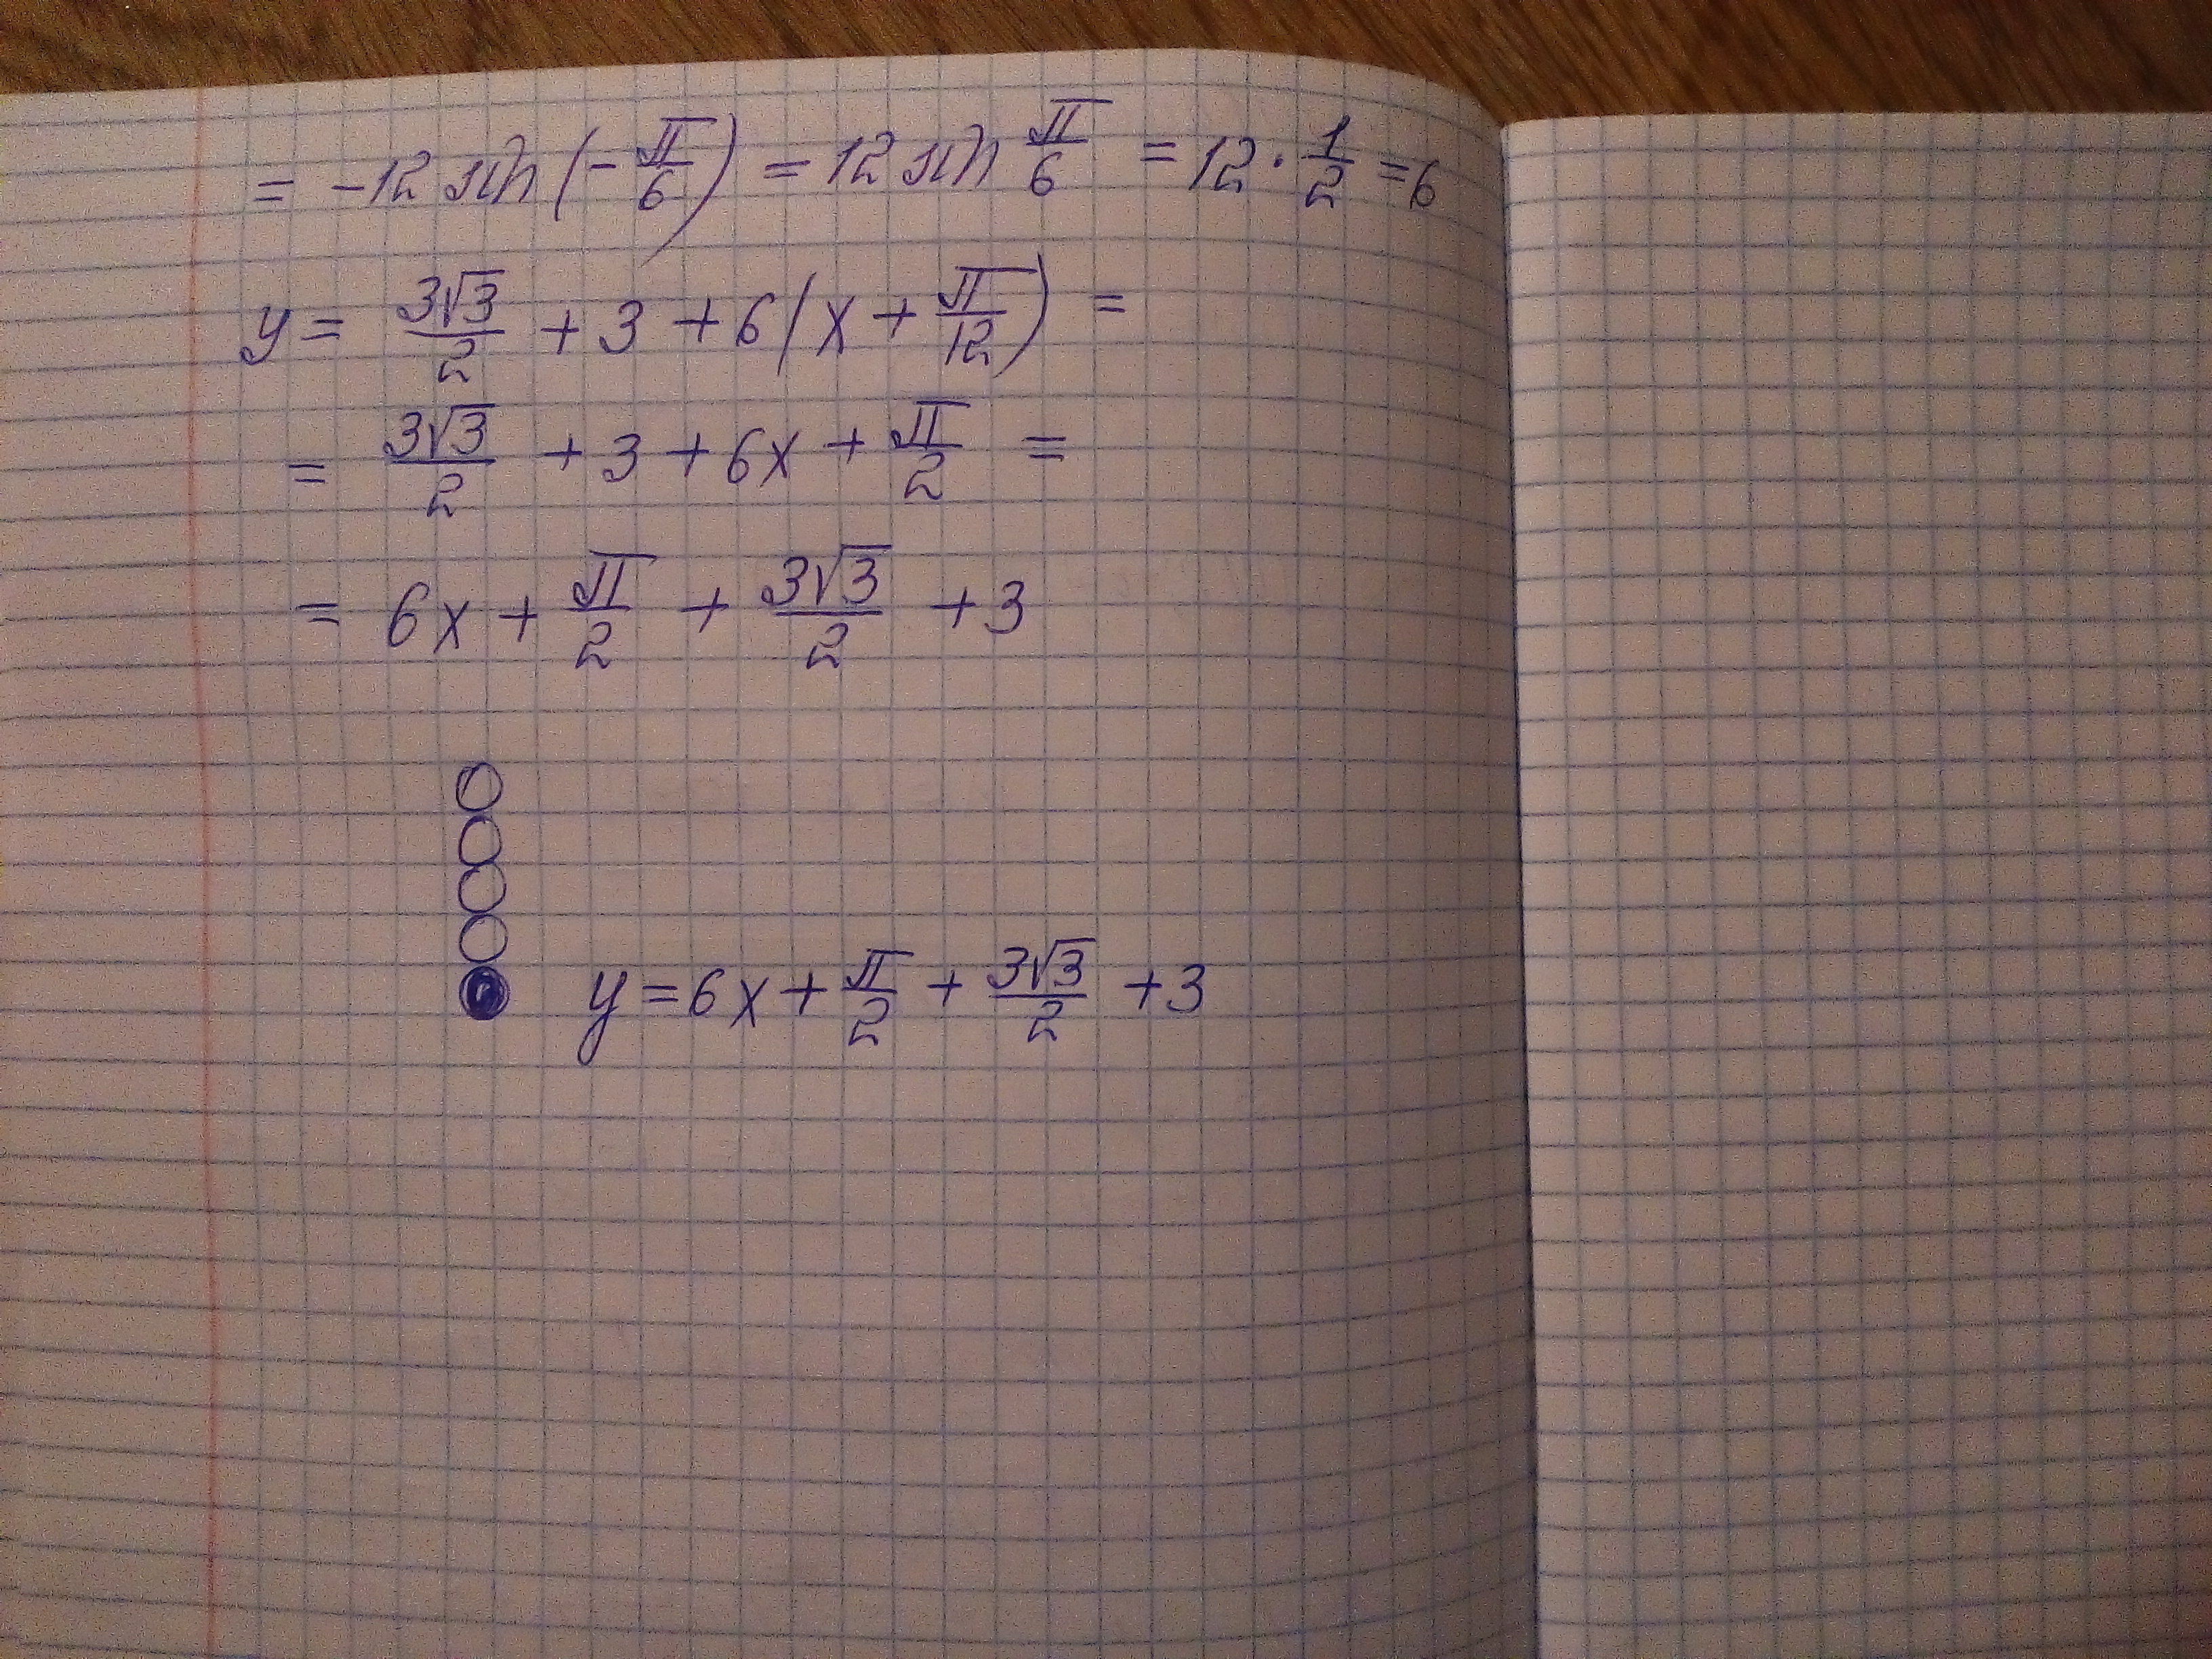 = -12 sin (-π/6) = 12 sin π/6 = 12 · 1/2 = 6
y = 3√3/2 + 3 + 6(x + π/12) =
= 3√3/2 + 3 + 6x + π/2 =
= 6x + π/2 + 3√3/2 + 3
y = 6x + π/2 + 3√3/2 + 3